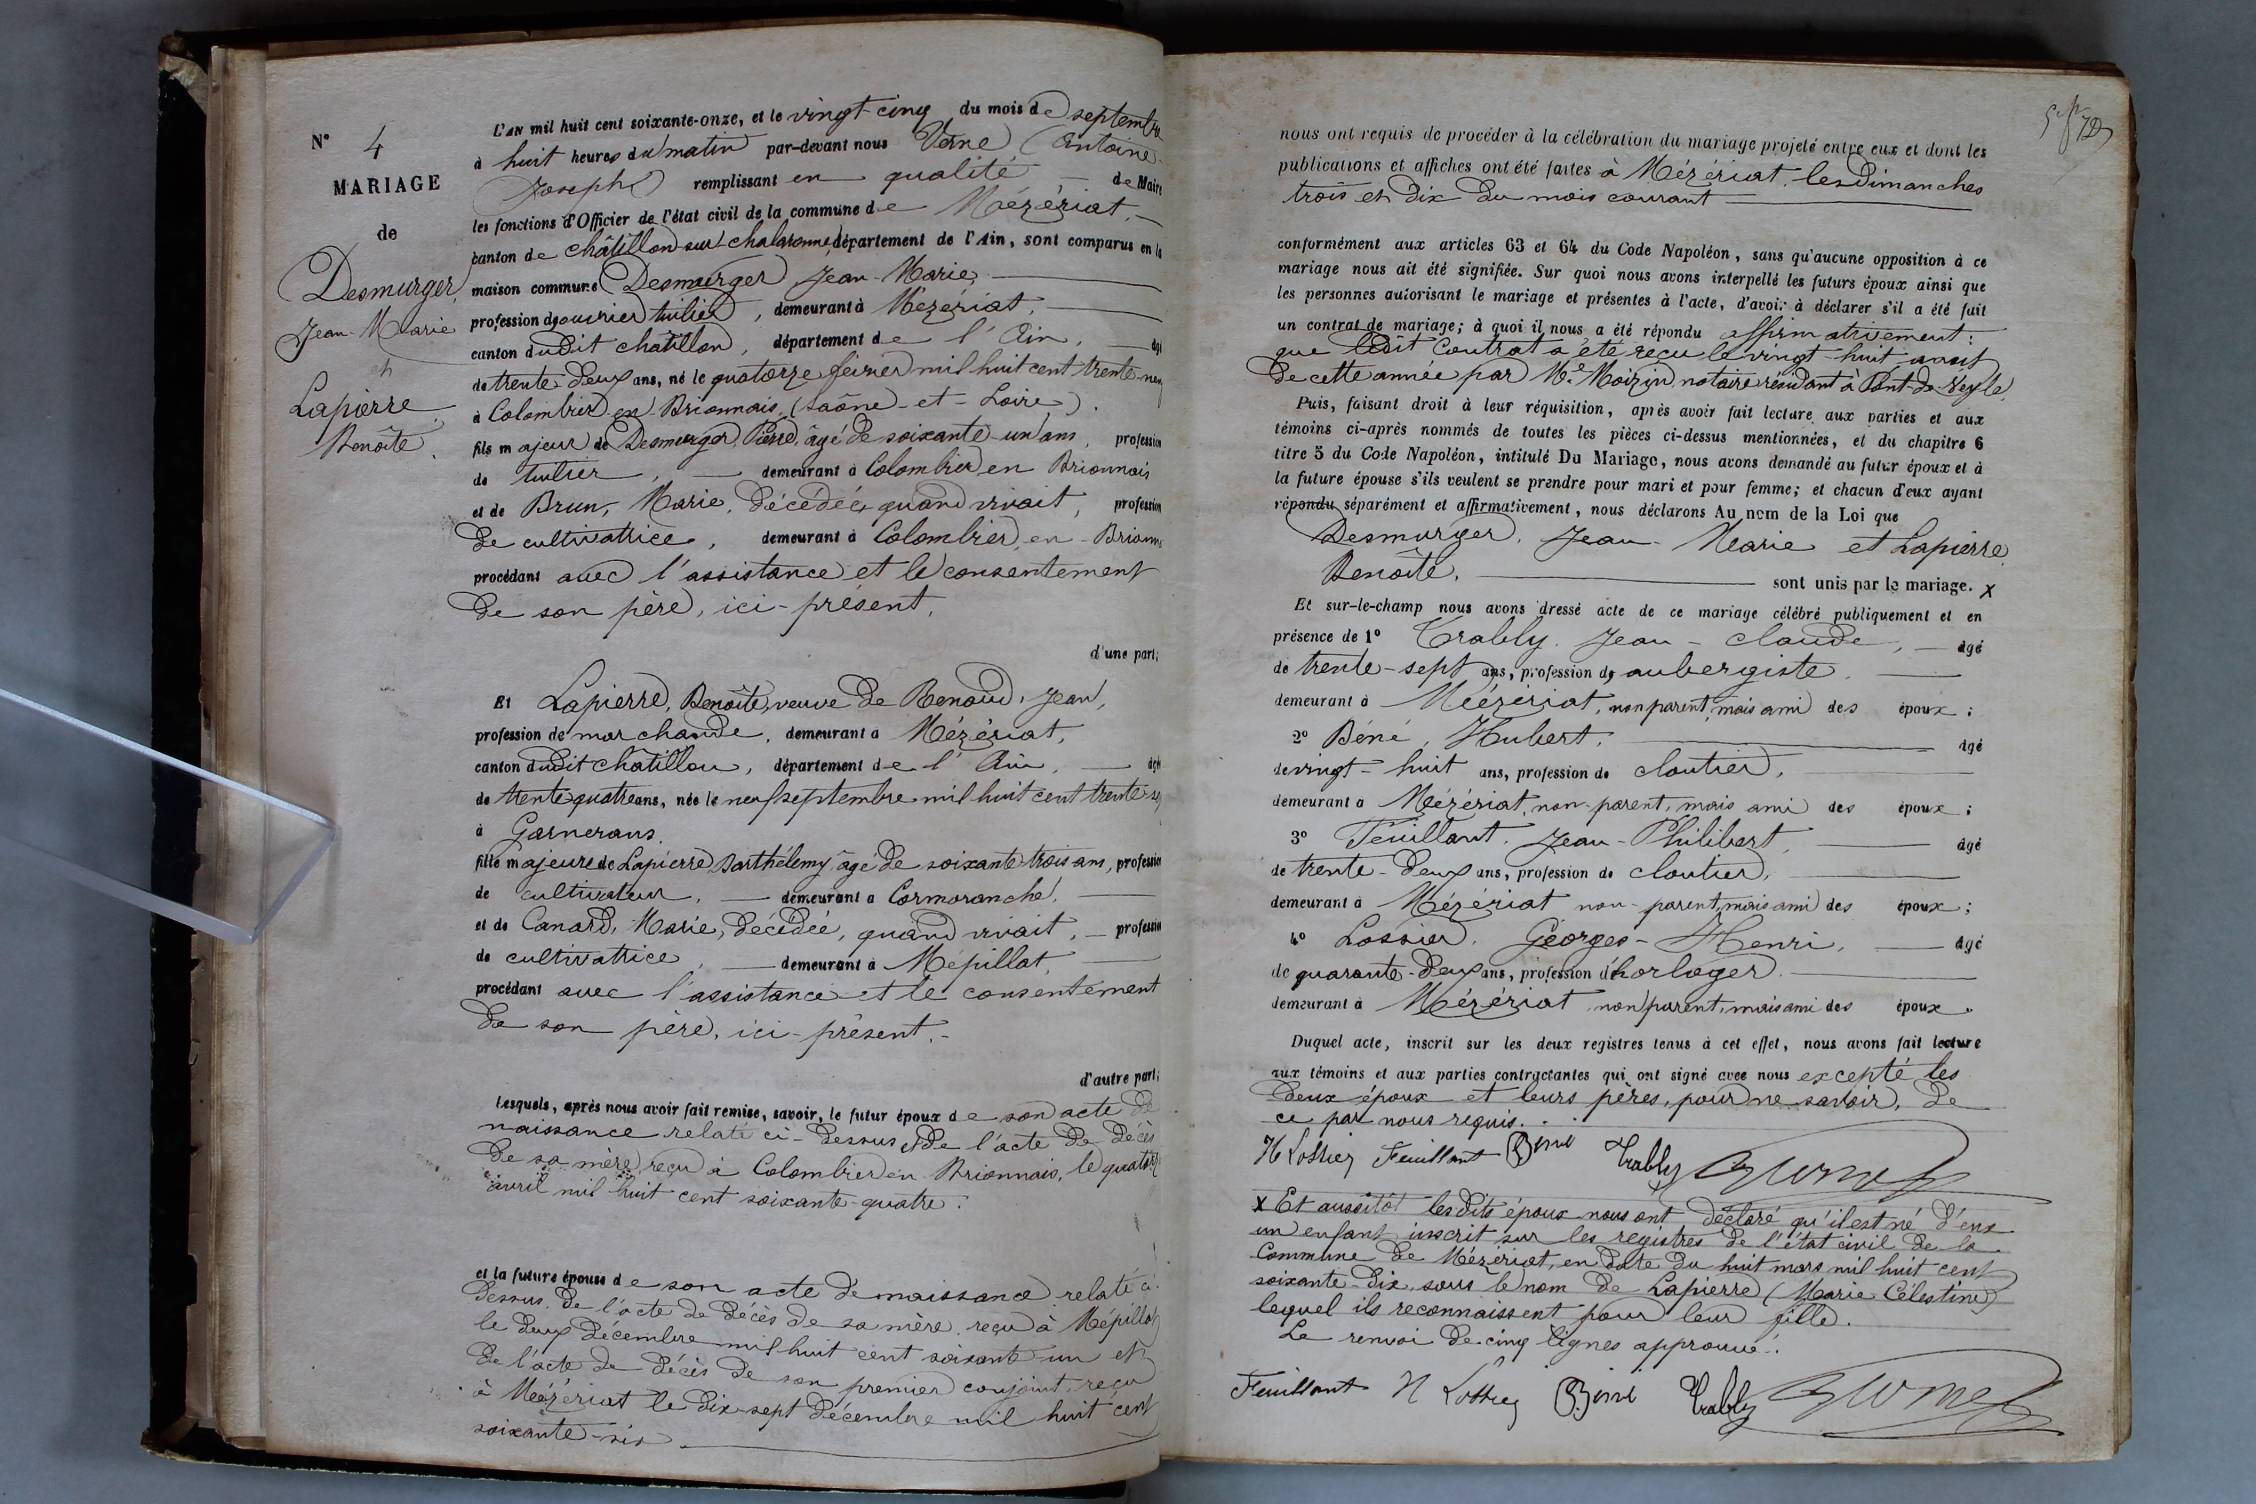 N° 4
MARIAGE
de
Desmurger,
Jean-Marie
et
Lapierre,
Benoîte.
L'AN mil huit cent soixante-onze, et le vingt-cinq du mois de septembre
à huit heures du matin par-devant nous Verne (Antoine-
Joseph) remplissant en qualité de Maire
les fonctions d'Officier de l'état civil de la commune de Mézériat,
canton de châtillon-sur-chalaronne département de l'Ain, sont comparus en la
maison commune Desmurger Jean-Marie,
profession d'ouvrier tuilier, demeurant à Mézériat,
canton dudit chatillon, département de l'Ain, âgé
de trente-deux ans, né le quatorze février mil huit cent trente-neuf
à Colombier-en-Brionnais, (Saône-et-Loire).
fils majeur de Desmurger, Pierre, âgé de soixante-un ans, profession
de tuilier, demeurant à Colombier en Brionnais
et de Brun, Marie, décédée, quand vivait, profession
de cultivatrice, demeurant à Colombier-en-Brionn
procédant avec l'assistance et le consentement
de son père, ici-présent,
d'une part;
Et Lapierre, Benoîte, veuve de Renoud, Jean,
profession de marchande, demeurant à Mézériat,
canton dudit chatillon, département de l'Ain, âgée
de trente quatre ans, née le neuf septembre mil huit cent trente-se
à Garnerans,
fille majeure de Lapierre, Barthélemy, âgé de soixante trois ans, profession
de cultivateur, demeurant à Cormoranche,
et de Canard, Marie, décédée, quand vivait, profession
de cultivatrice, demeurant à Mépillat,
procédant avec l'assistance et le consentement
de son père, ici-présent.
d'autre part;
Lesquels, après nous avoir fait remise, savoir, le futur époux de son acte de
naissance relaté ci-dessus et de l'acte de décès
de sa mère, reçu à Colombier en Brionnais, le quatorze
avril mil huit cent soixante-quatre.
et la future épouse de son acte de naissance relaté ci-
dessus, de l'acte de décès de sa mère, reçu à Mépillat
le deux décembre mil huit cent soixante-un et
de l'acte de décès de son premier conjoint, reçu
à Mézériat le dix-sept décembre mil huit cent
soixante-six.
nous ont requis de procéder à la célébration du mariage projeté entre eux et dont les
publications et affiches ont été faites à Mézériat, les dimanches
trois et dix du mois courant
conformément aux articles 63 et 64 du Code Napoléon, sans qu'aucune opposition à ce
mariage nous ait été signifiée. Sur quoi nous avons interpellé les futurs époux ainsi que
les personnes autorisant le mariage et présentes à l'acte, d'avoir à déclarer s'il a été fait
un contrat de mariage; à quoi il nous a été répondu affirmativement:
que ledit Contrat a été reçu le vingt-huit aout
de cette année par Me Moizin, notaire résidant à Pont-de-Veyle.
Puis, faisant droit à leur réquisition, après avoir fait lecture aux parties et aux
témoins ci-après nommés de toutes les pièces ci-dessus mentionnées, et du chapitre 6
titre 5 du Code Napoléon, intitulé Du Mariage, nous avons demandé au futur époux et à
la future épouse s'ils veulent se prendre pour mari et pour femme; et chacun d'eux ayant
répondu séparément et affirmativement, nous déclarons Au nom de la Loi que
Desmurger, Jean-Marie et Lapierre,
Benoîte, sont unis par le mariage. x
Et sur-le-champ nous avons dressé acte de ce mariage célébré publiquement et en
présence de 1° Trably, Jean-Claude, âgé
de trente-sept ans, profession d'aubergiste,
demeurant à Mézériat, non parent, mais ami des époux;
2° Béné, Hubert, âgé
de vingt-huit ans, profession de cloutier,
demeurant à Mézériat, non-parent, mais ami des époux;
3° Feuillant, Jean-Philibert, âgé
de trente-deux ans, profession de cloutier,
demeurant à Mézériat non-parent, mais ami des époux;
4° Lossier, Georges-Henri, âgé
de quarante-deux ans, profession d'horloger.
demeurant à Mézériat non parent, mais ami des époux.
Duquel acte, inscrit sur les deux registres tenus à cet effet, nous avons fait lecture
aux témoins et aux parties contractantes qui ont signé avec nous excepté les
deux époux et leurs pères, pour ne savoir, de
ce par nous requis.
H Lossier Feuillant Béné Trably Verne
x Et aussitôt lesdits époux nous ont déclaré qu'il est né d'eux
un enfant inscrit sur les registres de l'état civil de la
Commune de Mézériat, en date du huit mars mil huit cent
soixante-dix, sous le nom de Lapierre (Marie Célestine)
lequel ils reconnaissent pour leur fille.
Le renvoi de cinq lignes approuvé.
Feuillant H Lossier Béné Trably Verne